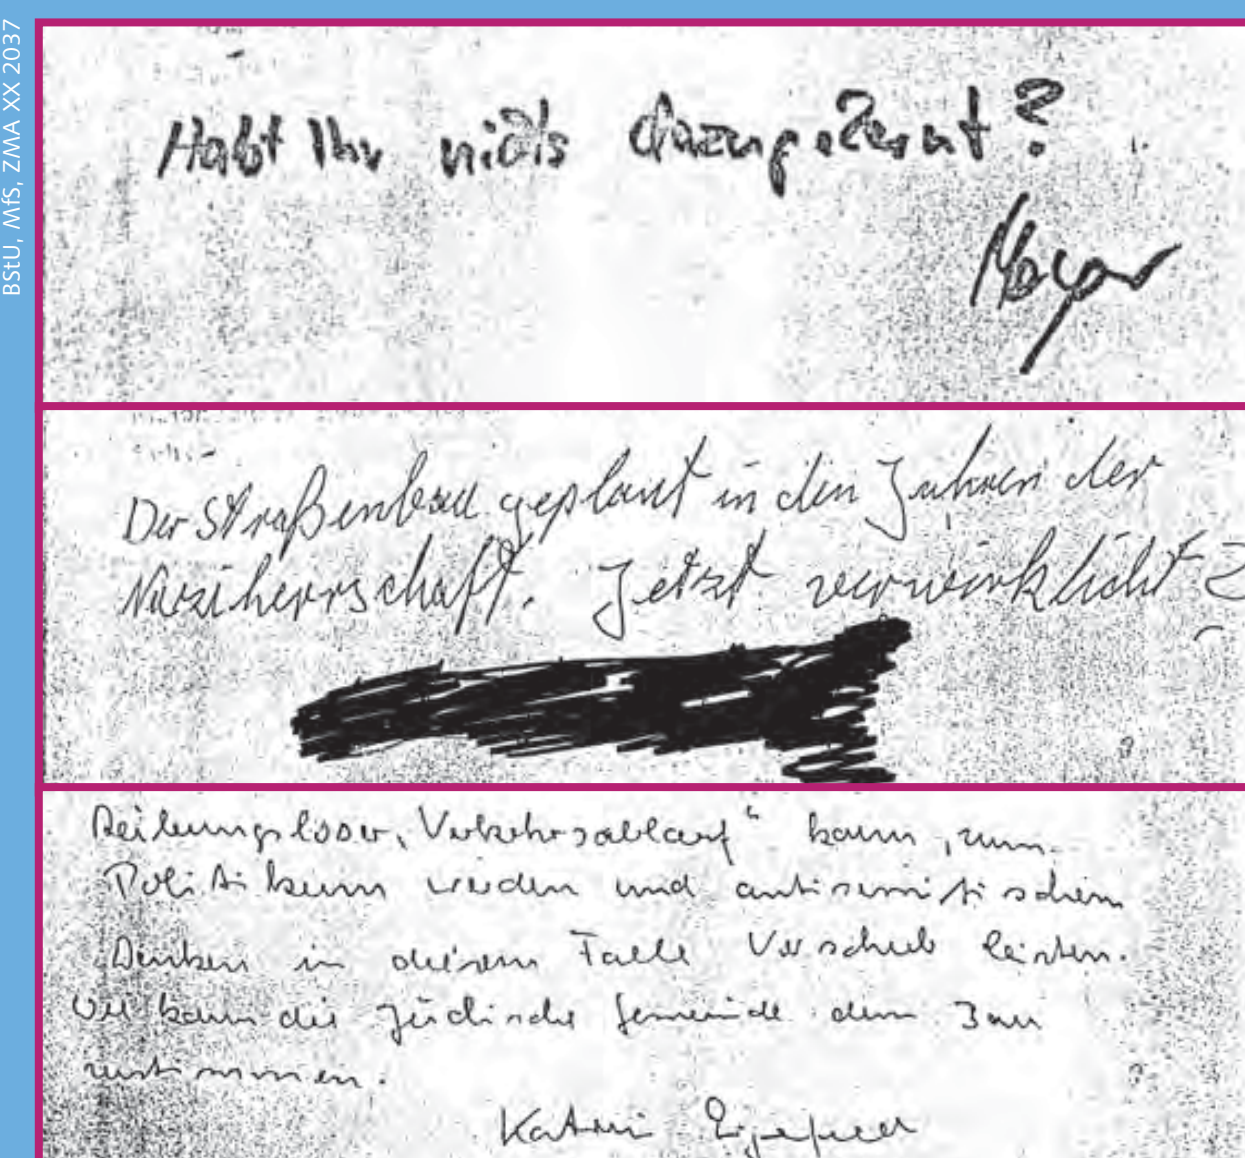 BStU, MfS, ZMA XX 2037
Habt Ihr nichts dazugelernt?
Der Straßenbau geplant in den Jahren der
Naziherrschaft. Jetzt verwirklicht?
Reibungsloser „Verkehrsablauf“ kann zum
Politikum werden und antisemitischem
Denken in diesem Falle Vorschub leisten.
Wie kann die Jüdische Gemeinde dem Bau
zustimmen.
Katrin